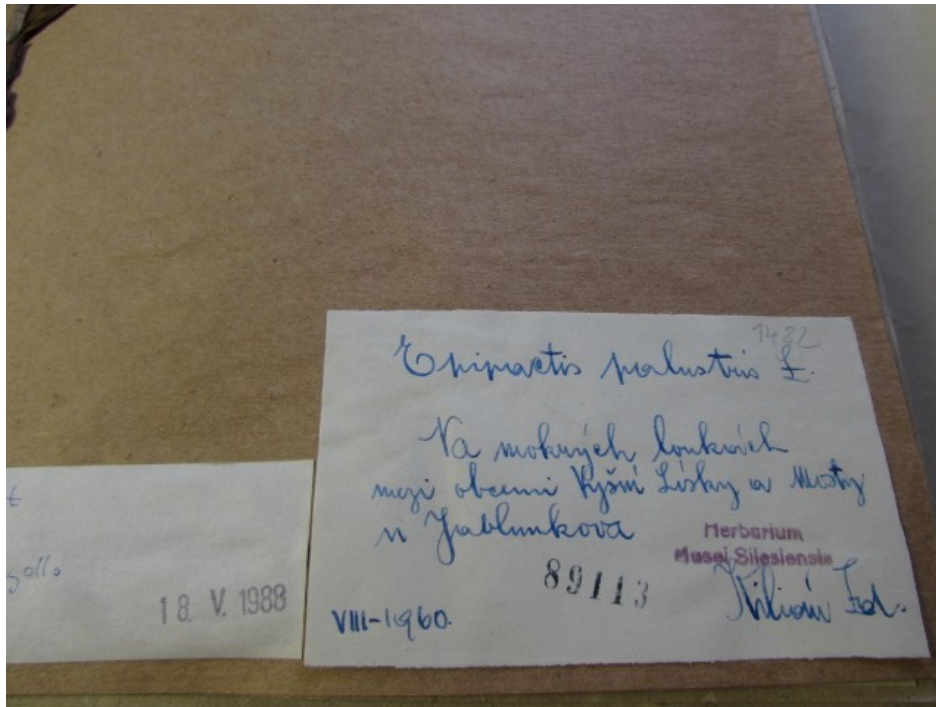 1482
Epipactis palustris L.
Na mokrých loukách
mezi obcemi Vyšní Lísky a Mosty
u Jablunkova
Herbarium
Musei Silesiensis
89113
Kilián Zd.
VIII-1960.
18. V. 1988